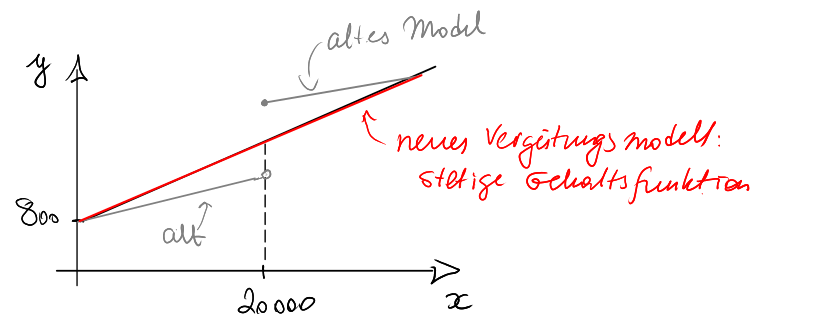 altes Model
y
neues Vergütungsmodell:
stetige Gehaltsfunktion
800
alt
20000
x